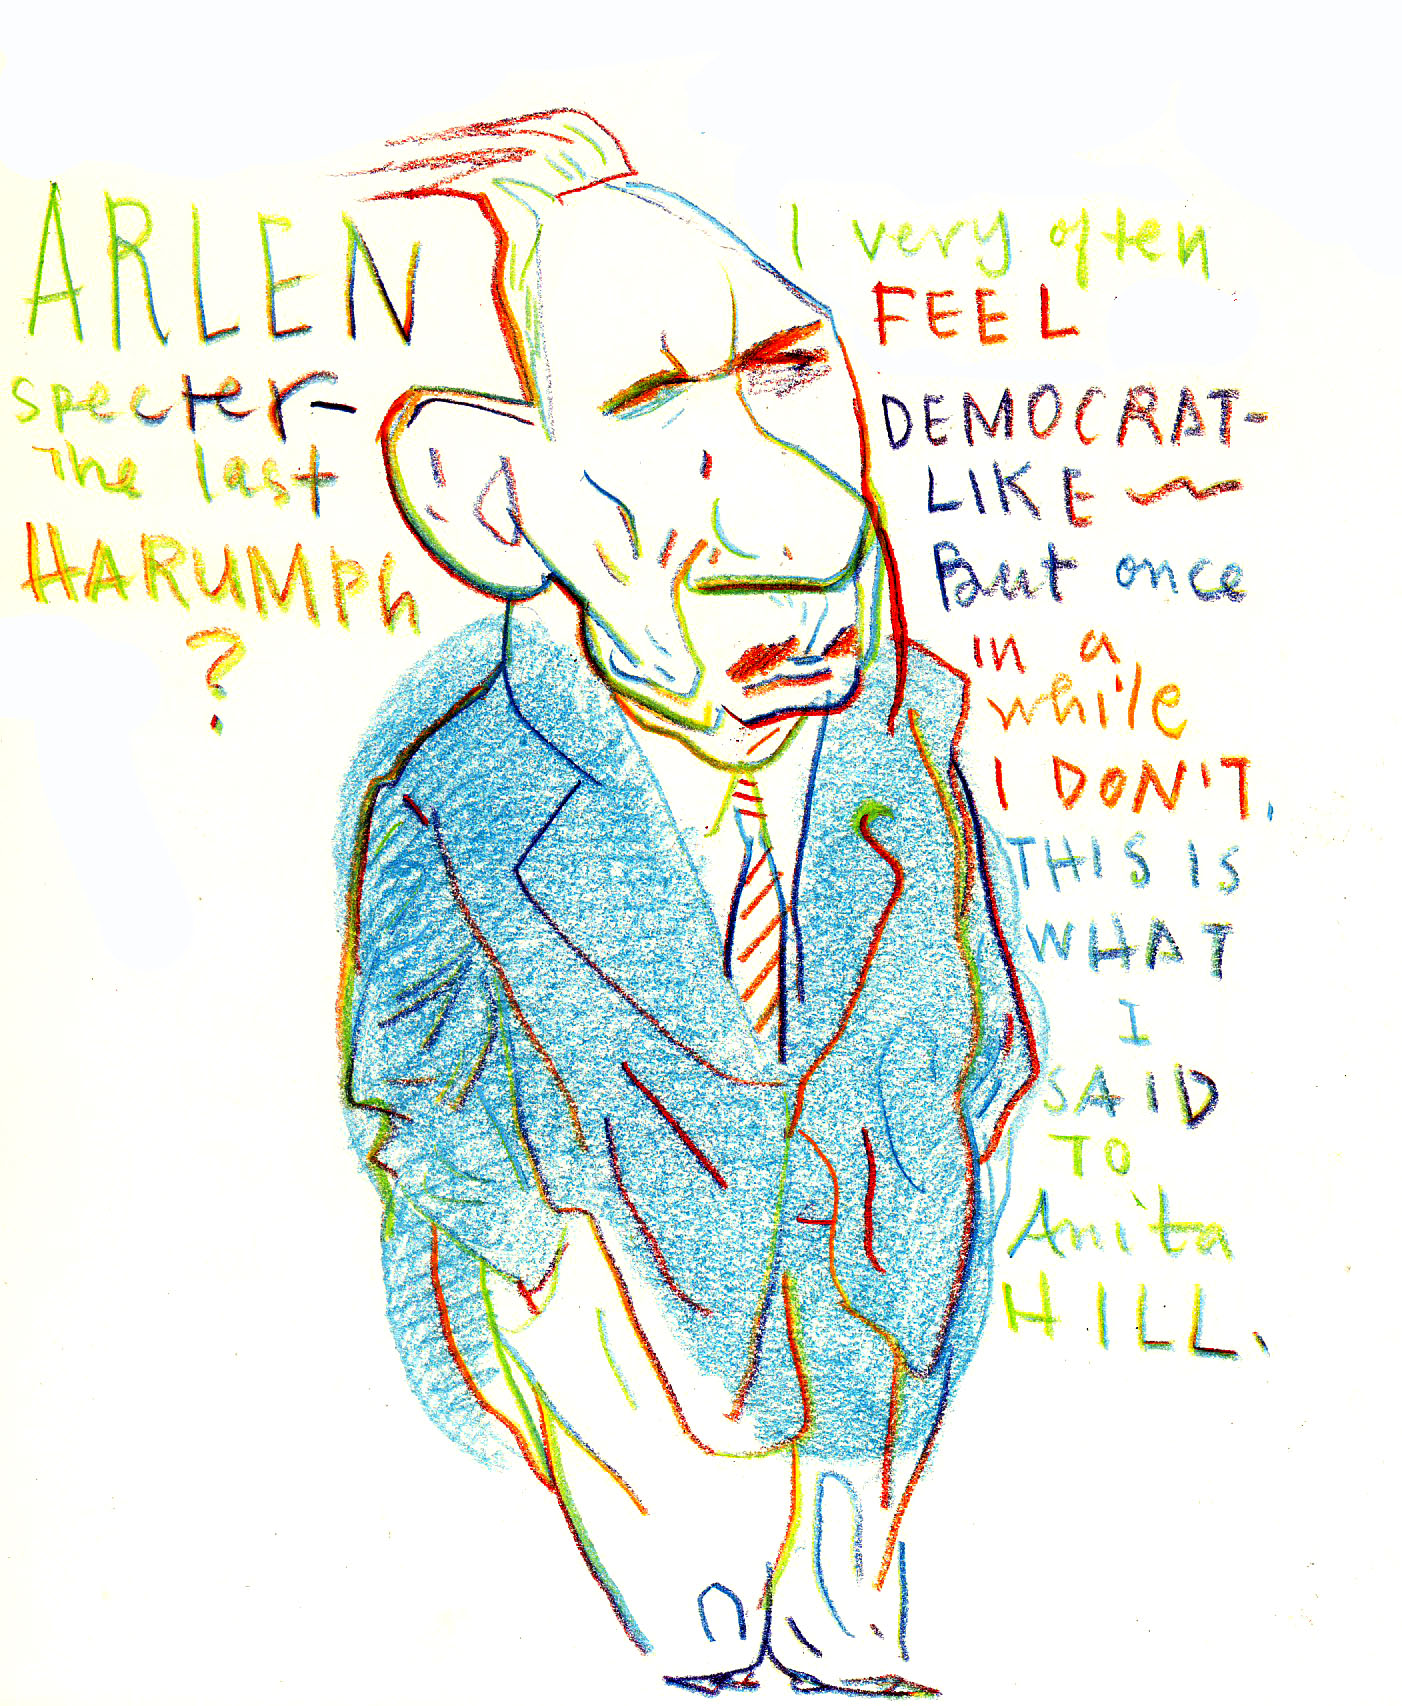 ARLEN
specter-
The last
HARUMPh
?
I very often
FEEL
DEMOCRAT-
LIKE ~
But once
in a
while
I DON'T.
THIS IS
WHAT
I
SAID
TO
Anita
HILL.